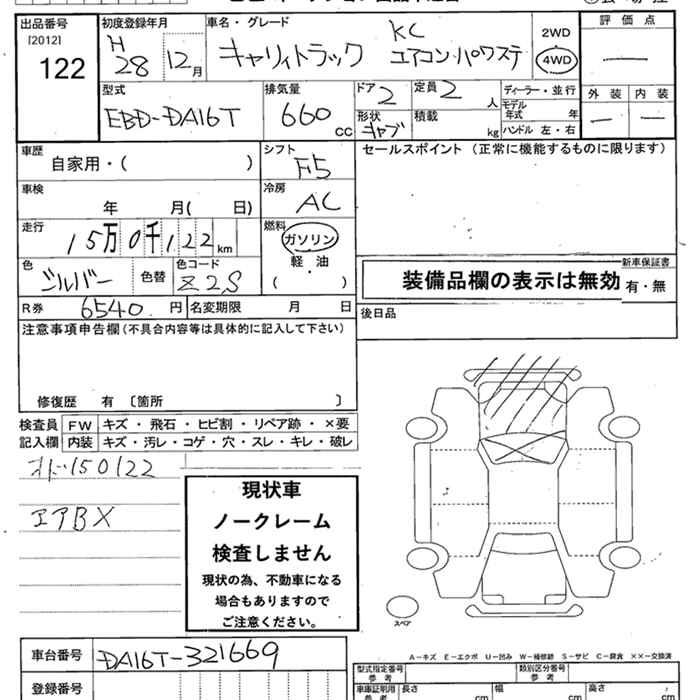 出品番号 初度登録年月 車名・グレード 評価点
[2012]
122
H 28 12月 キャリィトラック KC エアコン・パワステ 2WD 4WD
型式 排気量 ドア 定員 ディーラー・並行 外装 内装
EBD-DA16T 660 CC 2 2 人 モデル年式 年
形状 積載 kg ハンドル 左・右
車歴 シフト セールスポイント (正常に機能するものに限ります)
自家用・( ) F5
車検 冷房
年 月( 日) AC
走行 燃料
15万0千122km ガソリン
軽・油
( )
色 色替 色コード
シルバー Z2S
装備品欄の表示は無効 新車保証書
有・無
R券 6540円 名変期限 月 日 後日品
注意事項申告欄(不具合内容等は具体的に記入して下さい)
修復歴 有 〔箇所 〕
検査員 FW キズ・飛石・ヒビ割・リペア跡・×要
記入欄 内装 キズ・汚レ・コゲ・穴・スレ・キレ・破レ
オド150122
エアBX
現状車
ノークレーム
検査しません
現状の為、不動車になる
場合もありますので
ご注意ください。
スペア
A-キズ E-エクボ U-凹み W-補修跡 S-サビ C-腐食 ××-交換済
車台番号 DA16T-321669
型式指定番号 参考 類別区分番号 参考
登録番号
車庫証明用 参考 長さ cm 幅 cm 高さ cm